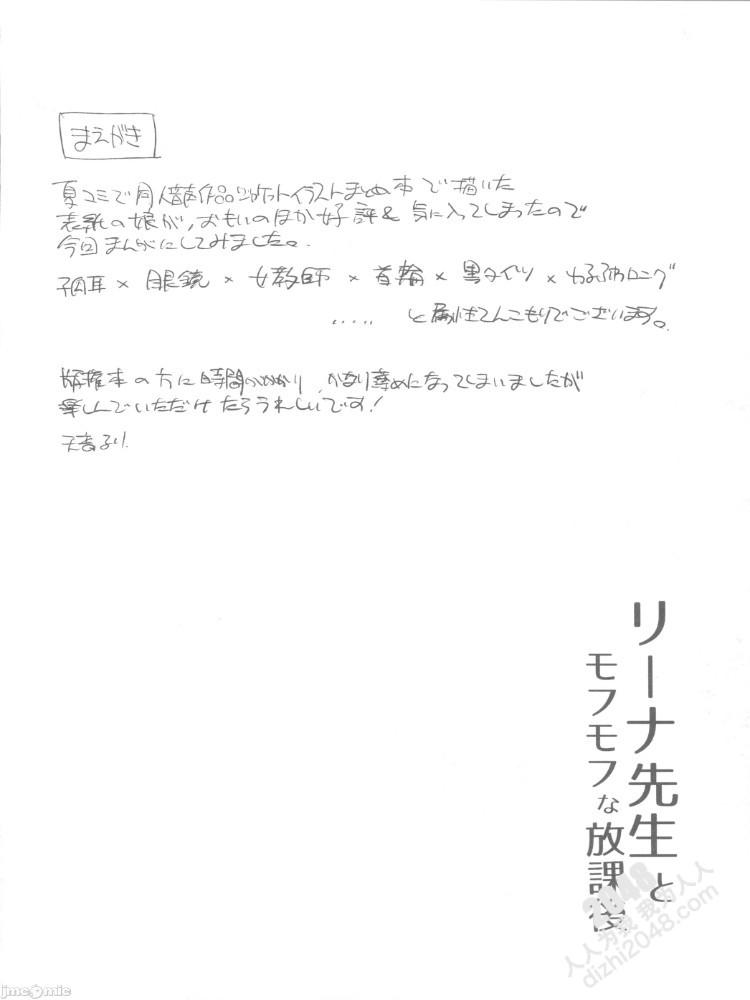 まえがき
夏コミで同人音声作品ジャケットイラストまとめ本で描いた
表紙の娘が、おもいのほか好評&気に入ってしまったので
今回まんがにしてみました。
狐耳×眼鏡×女教師×首輪×黒タイツ×ゆるふわロング
..... と属性てんこもりでございます。
本の方に時間がかかり、かなり薄めになってしまいましたが
楽しんでいただけたらうれしいです!
リーナ先生と
モフモフな放課後
2048
人人为我 我为人人
dizhi2048.com
jmc-o-mic